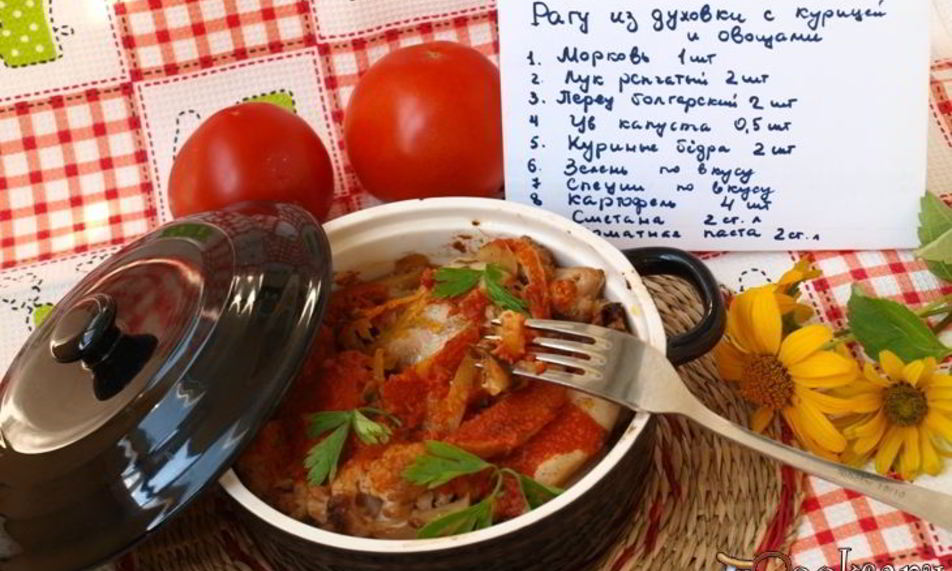 Рагу из духовки с курицей
и овощами
1. Морковь 1шт
2. Лук репчатый 2шт
3. Перец болгарский 2 шт
4 Цв капуста 0,5 шт
5. Куриные бідра 2 шт
6. Зелень по вкусу
7 Специи по вкусу
8 Картофель 4 шт
Сметана 2 ст. л
паста 2 ст. л